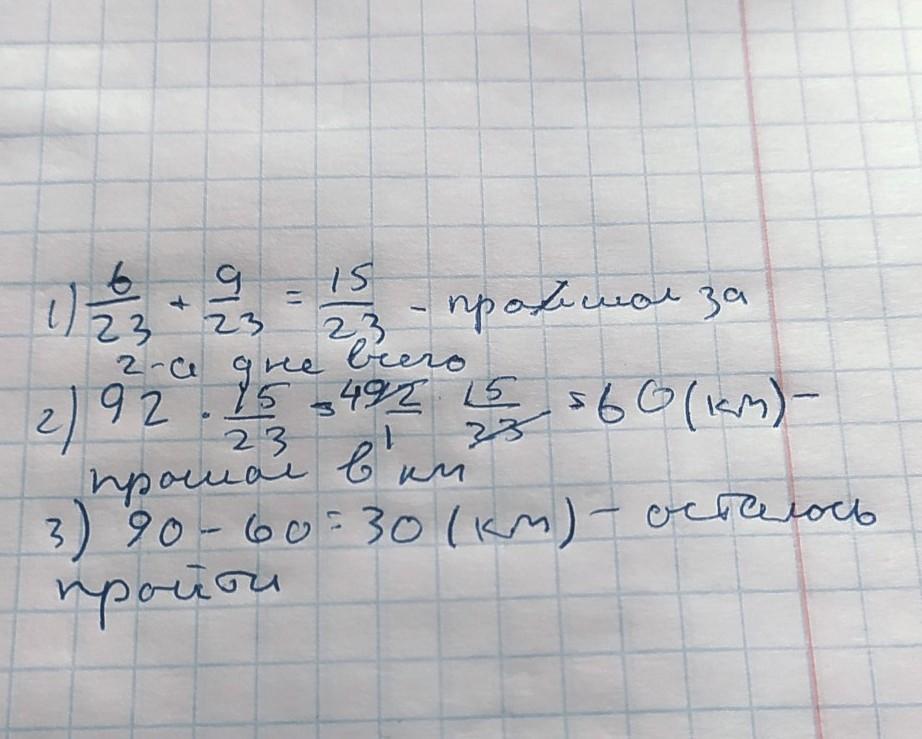 1) 6/23 + 9/23 = 15/23 - прошол за
2-а дне всего
2) 92 · 15/23 = 4 92/1 · 15/23 = 60 (км) -
прошол в км
3) 90 - 60 = 30 (км) - осталось
пройти